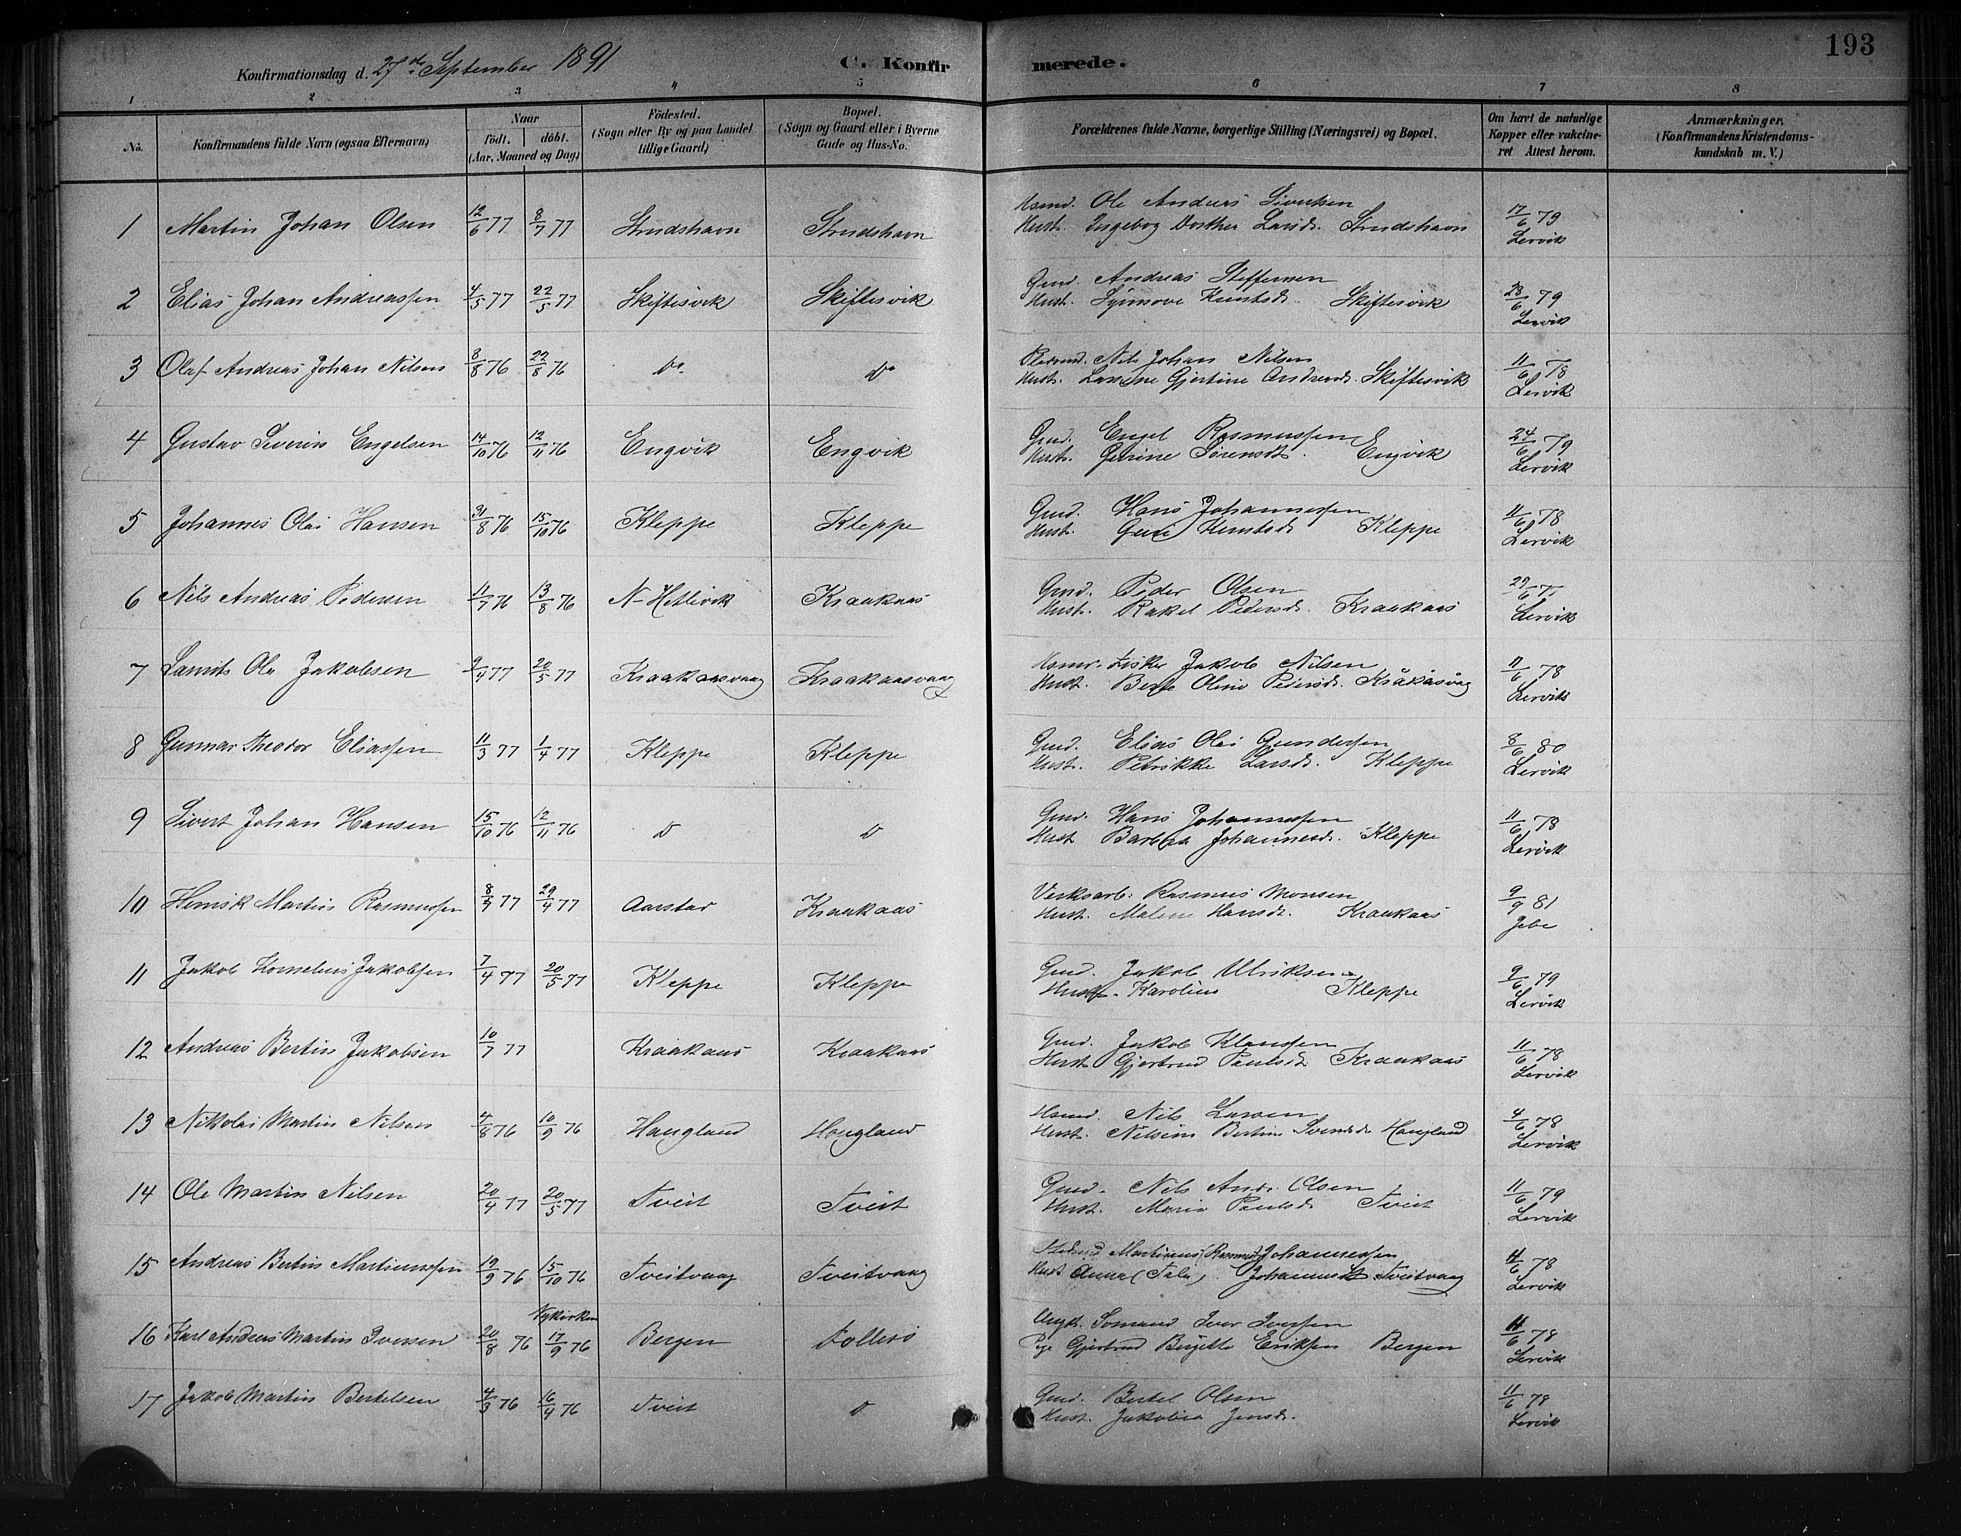 193
Konfirmationsdag d. 27de September 1891
C. Konfirmerede.
1 2 3 4 5 6 7 8
No. Konfirmandens fulde Navn (ogsaa Efternavn) Naar født. døbt. (Aar, Maaned og Dag) Fødested. (Sogn eller By og paa Landet tillige Gaard) Bopæl. (Sogn og Gaard eller i Byerne Gade og Hus-No. Forældrenes fulde Navne, borgerlige Stilling (Næringsvei) og Bopæl. Om havt de naturlige Kopper eller vakcineret Attest herom. Anmærkninger. (Konfirmandens Kristendomskundskab m. V.)
1 Martin Johan Olsen 12/6 77 8/7 77 Strudshavn Strudshavn Husmd. Ole Andreas Sivertsen 17/6 79
Hust. Ingeborg Dorthea Larsd. Strudshavn Lervik
2 Elias Johan Andreassen 4/5 77 22/5 77 Skiftesvik Skiftesvik Gmd. Andreas Steffensen 28/6 79
Hust. Synnove Knutsd. Skiftesvik Lervik
3 Olaf Andreas Johan Nilsen 8/8 76 22/8 76 Do Do Nils Johan Nilsen 11/6 78
Hust. Gjertine Andersd. Skiftesvik Lervik
4 Gustav Severin Engelsen 14/10 76 12/11 76 Engvik Engvik Gmd. Engel Rasmussen 24/6 79
Hust. Gurine Sørensdt. Engvik Lervik
5 Johannes Olai Hansen 31/8 76 15/10 76 Kleppe Kleppe Gmd. Hans Johannessen 11/6 78
Hust. Guri Knutsd. Kleppe Lervik
6 Nils Andreas Pedersen 11/7 76 13/8 76 N-Hetlevik Kraakaas Gmd. Peder Olsen 29/6 77
Hust. Rakel Pedersd. Kraakaas Lervik
7 Laurits Ole Jakobsen 2/4 77 20/5 77 Kraakaasvaag Kraakaasvaag Fisker Jakob Nilsen 11/6 78
Hust. Berte Oline Pedersd. Kråkåsvag Lervik
8 Gunnar Theodor Eliassen 11/3 77 1/4 77 Kleppe Kleppe Gmd. Elias Olai Gundersen 8/6 80
Hust. Petrikke Larsd. Kleppe Lervik
9 Sivert Johan Hansen 15/10 76 12/11 76 D D Gmd. Hans Johannessen 11/6 78
Hust Barbra Johannesd. Kleppe Lervik
10 Henrik Martin Rasmussen 29/4 77 Aarstad Kraakaas Verksarb. Rasmus Monsen 9/9 81
Hust. Malene Hansdt. Kraakaas Jebe
11 Jakob Kornelius Jakobsen 7/4 77 20/5 77 Kleppe Kleppe Gmd. Jakob Ulriksen 9/6 79
Hust. Karoline Kleppe Lervik
12 Andreas Bertin Jakobsen 10/7 77 Kraakaas Kraakaas Gmd. Jakob Klaussen 11/6 78
Hust. Gjertrud Paulsd Kraakaas Lervik
13 Nikolai Martin Nilsen 4/8 76 10/9 76 Haugland Haugland Husmd. Nils Larsen 4/6 78
Hust. Nilsine Bertine Svendsd. Haugland Lervik
14 Ole Martin Nilsen 20/4 77 20/5 77 Tveit Tveit Gmd. Nils Andr. Olsen 11/6 79
Hust. Maria Paulsd. Tveit Lervik
15 Andreas Bertin Martinussen 19/9 76 15/10 76 Tveitvaag Tveitvaag Martinus (Rasmus) Johannessen 11/6 78
Hust Anna (Tala) Johannesdt Tveitvaag Lervik
Nykirken
16 Karl Andreas Martin Iversen 20/8 76 17/9 76 Bergen Follesø Ungk. Sømand Iver Iversen 11/6 78
Pige Gjertrud Birgitte Eriksen Bergen Lervik
17 Jakob Martin Bertelsen 4/3 76 16/4 76 Tveit D Gmd. Bertel Olsen 11/6 78
Hust. Jakobia Jensd. Lervik